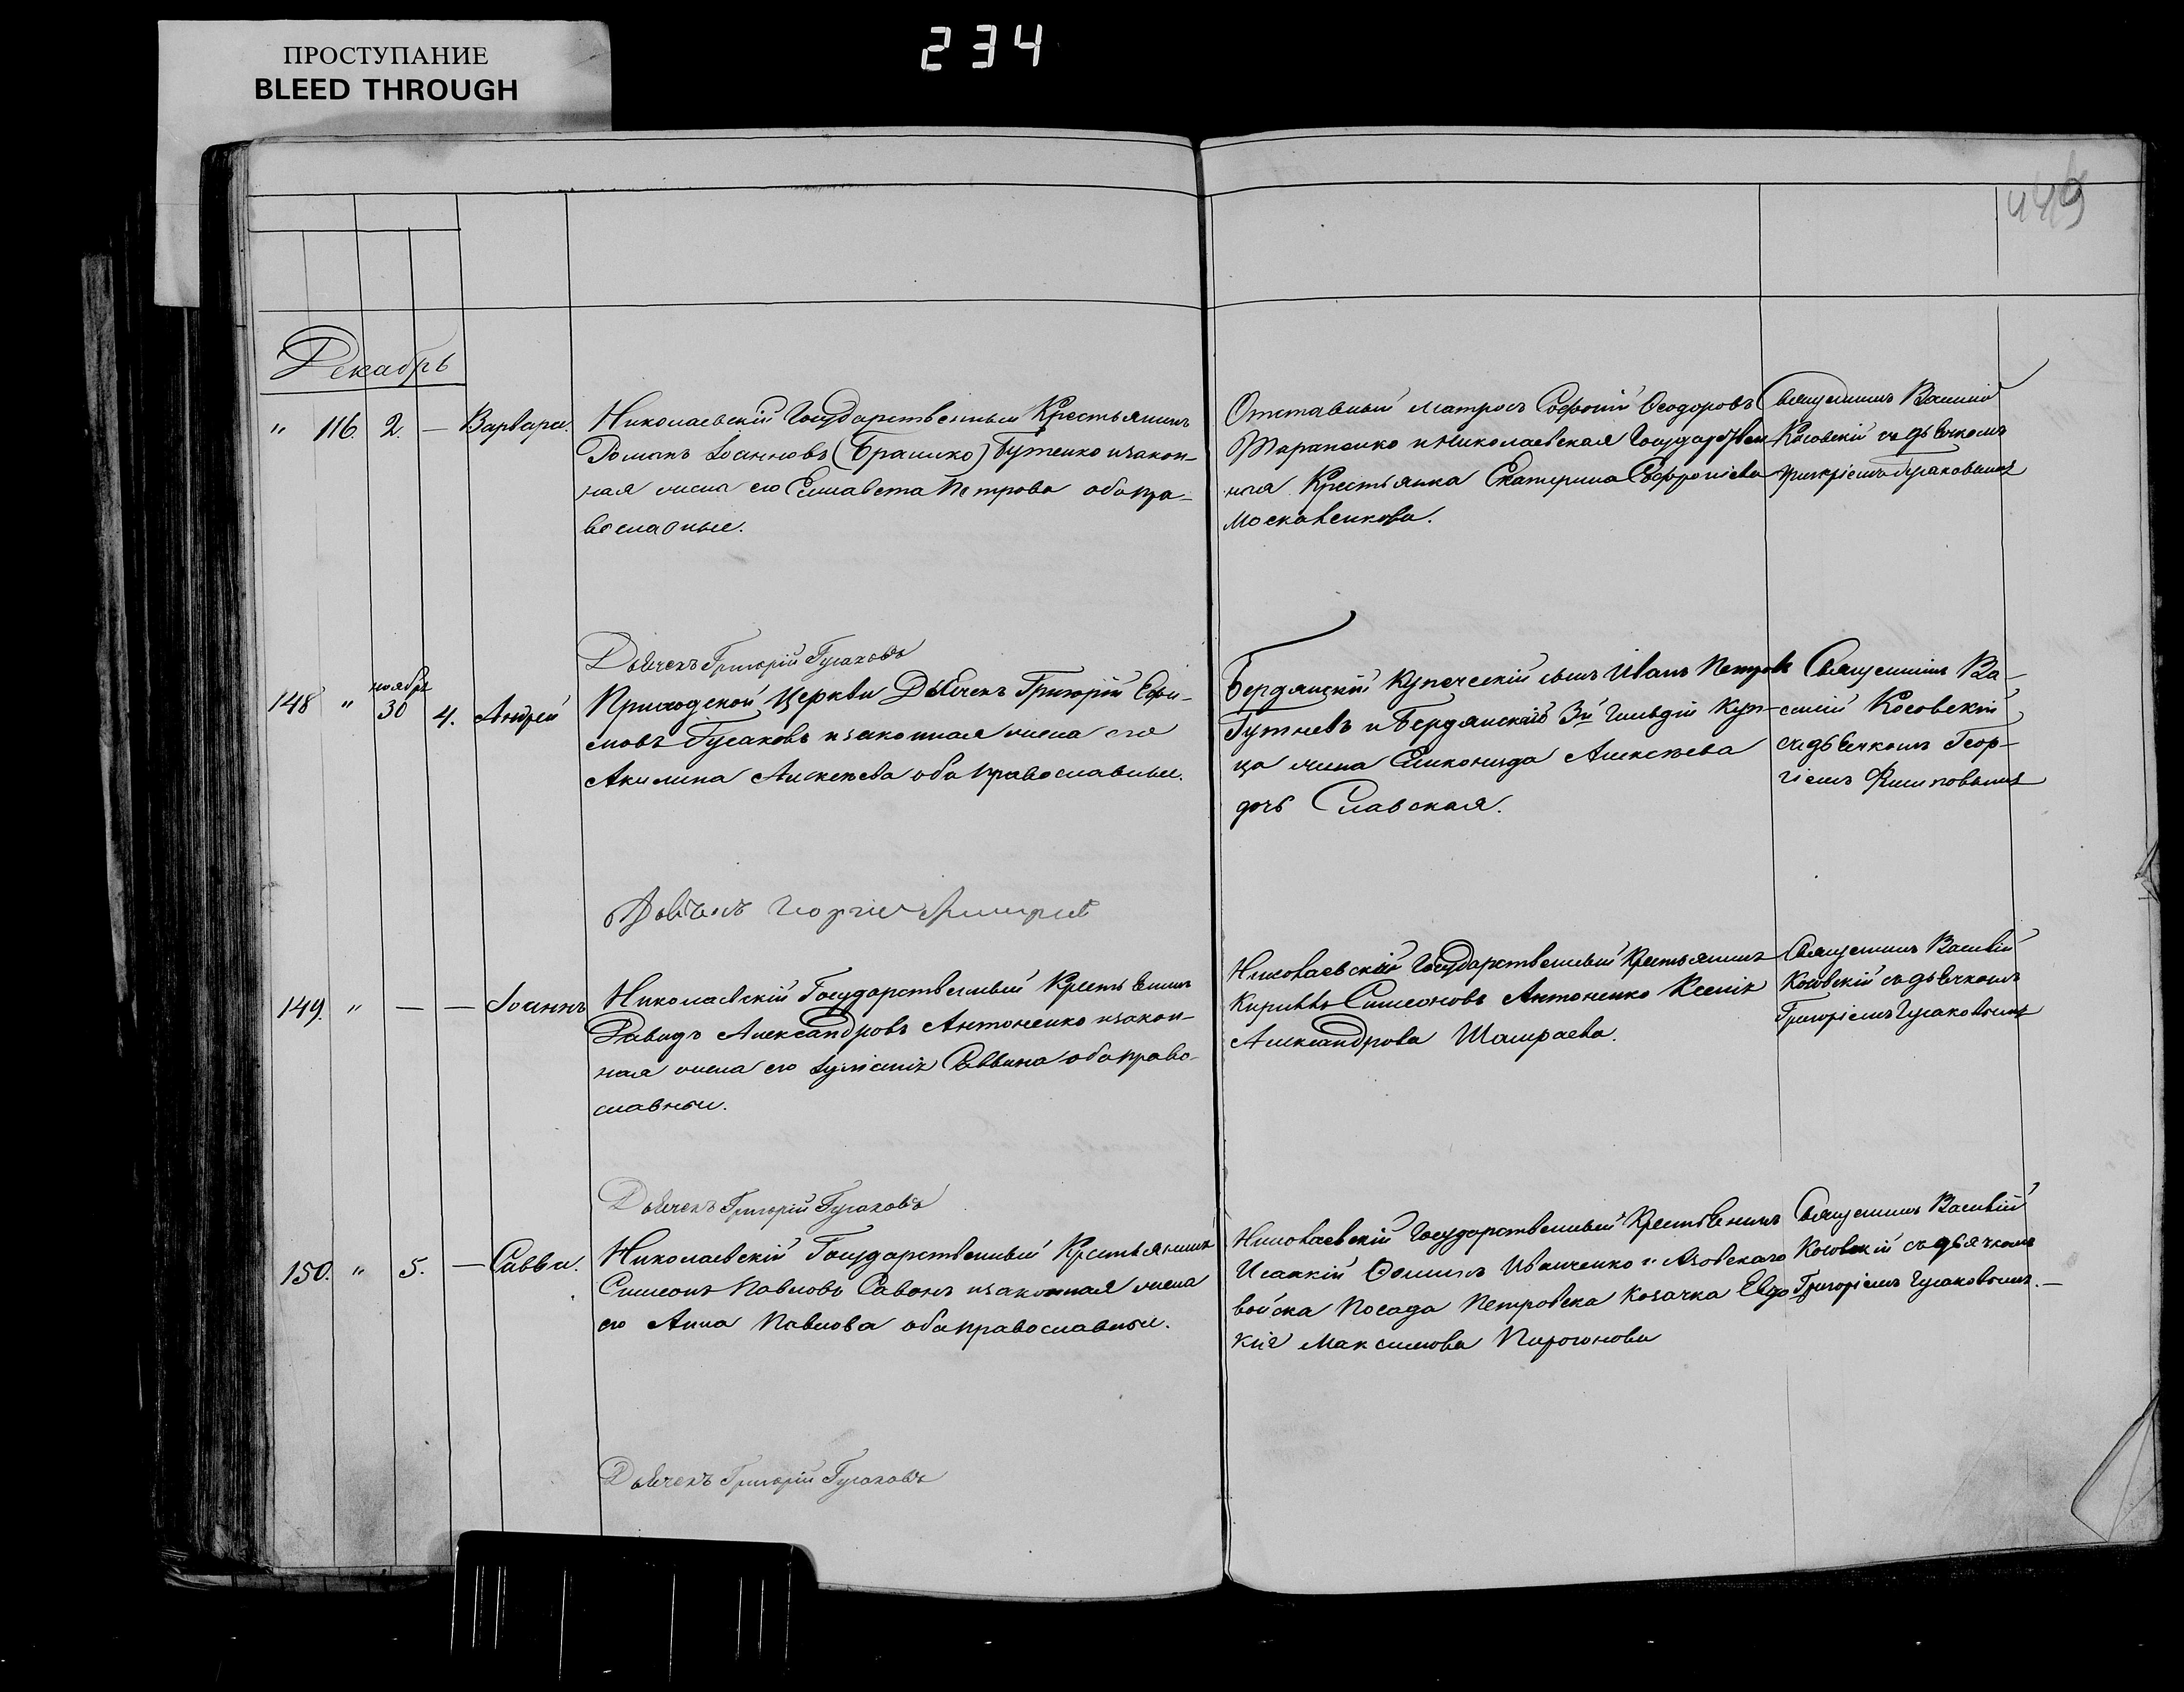 ПРОСТУПАНИЕ
BLEED THROUGH
234
449
Декабрь
" 116. 2. — Варвара.
Николаевскій Государственный Крестьянинъ
Романъ Іоанновъ (Брашко) Бутенко и закон-
ная жена его Елисавета Петрова оба пра-
вославные.
Отставный матросъ Софоній Ѳеодоровъ
Тараненко и Николаевская Государствен-
ная Крестьянка Екатерина Софроніева
Москвенкова.
Священникъ Василій
Косовскій съ дьячкомъ
Григоріемъ Гусаковымъ
Дьячекъ Григорій Гусаковъ
148 " ноября 30 4. Андрей
Приходской Церкви Дьячекъ Григорій Ефи-
мовъ Гусаковъ и законная жена его
Акилина Алексѣева оба православные.
Бердянскій купеческій сынъ Иванъ Петровъ
Гутневъ и Бердянскаго 3й гильдіи Куп-
ца жена Еликонида Алексѣева
дочь Славская.
Священникъ Ва-
силій Косовскій
съ дьячкомъ Геор-
гіемъ Филиповымъ
Дьячекъ Георгій
149. " — — Іоаннъ
Николаевскій Государственный Крестьянинъ
Давидъ Александровъ Антоненко и закон-
ная жена его Іуліанія Саввина оба право-
славные.
Николаевскій Государственный Крестьянинъ
Кириллъ Симеоновъ Антоненко Ксенія
Александрова Шамраева.
Священникъ Василій
Косовскій съ дьячкомъ
Григоріемъ Гусаковымъ
Дьячекъ Григорій Гусаковъ
150. " 5. — Савва.
Николаевскій Государственный Крестьянинъ
Симеонъ Павловъ Савонъ и законная жена
его Анна Павлова оба православные.
Николаевскій Государственный Крестьянинъ
Исаакій Ѳоминъ Иванченко и Азовскаго
войска Посада Петровска козачка Евдо-
кія Максимова Пирогонова
Священникъ Василій
Косовскій съ дьячкомъ
Григоріемъ Гусаковымъ. —
Дьячекъ Григорій Гусаковъ